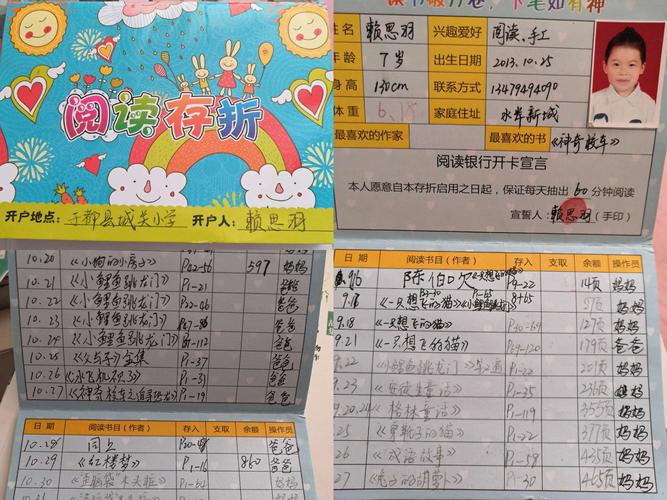 阅读存折
开户地点:于都县城关小学 开户人:赖思羽
读书破万卷,下笔如有神
姓名 赖思羽 兴趣爱好 阅读、手工
年龄 7岁 出生日期 2013.10.25
身高 130cm 联系方式 13479494090
体重 家庭住址 水岸新城
最喜欢的作家 最喜欢的书 《神奇校车》
阅读银行开卡宣言
本人愿意自本存折启用之日起,保证每天抽出60分钟阅读
宣誓人:赖思羽(手印)
10.20 《小狗的小房子》 P42-56 597 妈妈
10.21 《小鲤鱼跳龙门》 P1-21
10.22 《小鲤鱼跳龙门》 P22-46 爸爸
10.23 《小鲤鱼跳龙门》 爸爸
10.24 《小鲤鱼跳龙门》 爸爸
10.25 《父与子》全集 P1-37 爸爸
10.26 P1-31 爸爸
10.27 P1-19 爸爸
日期 阅读书目(作者) 存入 支取 余额 操作员
10.28 同上 爸爸
10.29 《红楼梦》 P1-16 860 爸爸
10.30 P1-64 妈妈
10.31 妈妈
日期 阅读书目(作者) 存入 支取 余额 操作员
9.16 陈伯吹《一只想飞的猫》 P9-22 14页 妈妈
9.16 《一只想飞的猫》《小鲤鱼跳龙门》 妈妈
9.18 《一只想飞的猫》 P40-69 127页 妈妈
9.21 《一只想飞的猫》 179页 爸爸
9.22 《小鲤鱼跳龙门》 P1-22 201页 妈妈
9.23 《安徒生童话》 P1-35 236页 妈妈
9.20.24 《格林童话》 P1-119 355页 妈妈
25 P1-22 377页 妈妈
26 《成语故事》 P1-58 435页 妈妈
27 P1-30 465页 妈妈